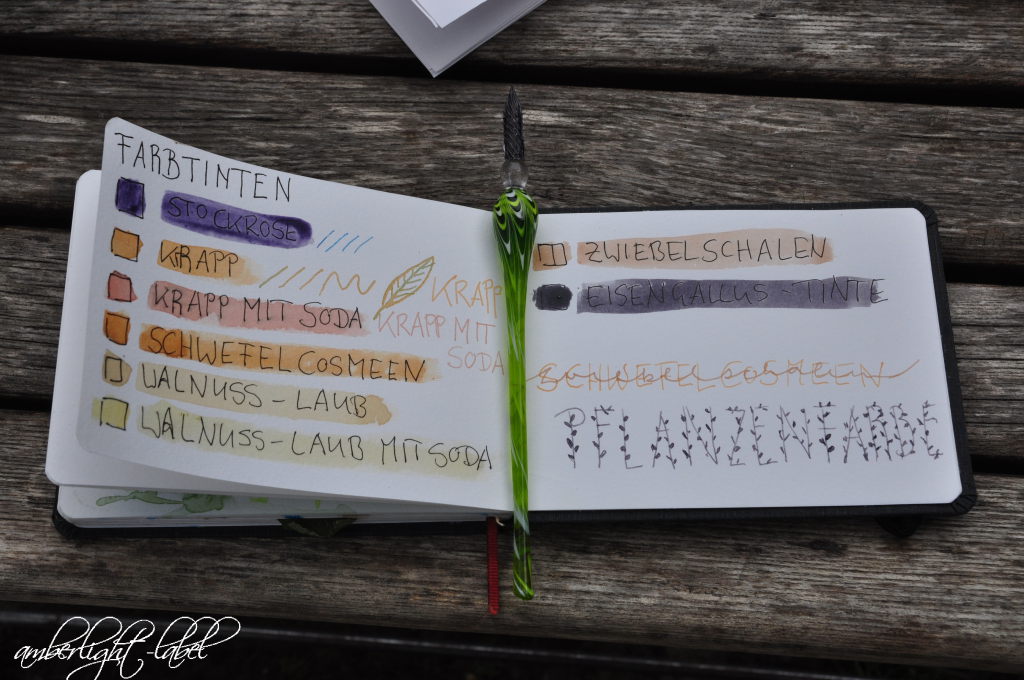 FARBTINTEN
STOCKROSE
KRAPP
KRAPP
KRAPP MIT SODA
KRAPP MIT
SODA
SCHWEFELCOSMEEN
WALNUSS-LAUB
WALNUSS-LAUB MIT SODA
ZWIEBELSCHALEN
EISENGALLUS-TINTE
SCHWEFELCOSMEEN
PFLANZENFARBE
amberlight-label